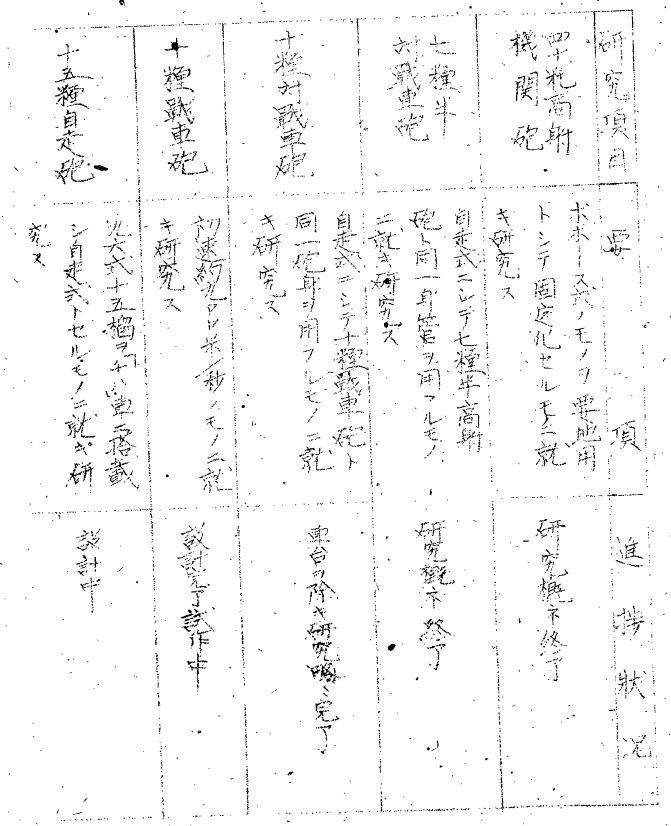 研究項目
要項
進捗状况
四十粍高射
機関砲
ボホース式ノモノヲ要地用
トシテ固定化セルモノニ就
キ研究ス
研究概ネ終了
七糎半
対戦車砲
自走式ニシテ七糎半高射
砲ト同一身管ヲ用フルモノ
ニ就キ研究ス
研究概ネ終了
十糎対戦車砲
自走式ニシテ十糎戦車砲ト
同一砲身ヲ用フルモノニ就
キ研究ス
車台ヲ除キ研究略々完了
十糎戦車砲
初速約九〇〇米/秒ノモノニ就
キ研究ス
設計完了試作中
十五糎自走砲
九六式十五榴ヲチハ車ニ搭載
シ自走式トセルモノニ就キ研
究ス
設計中